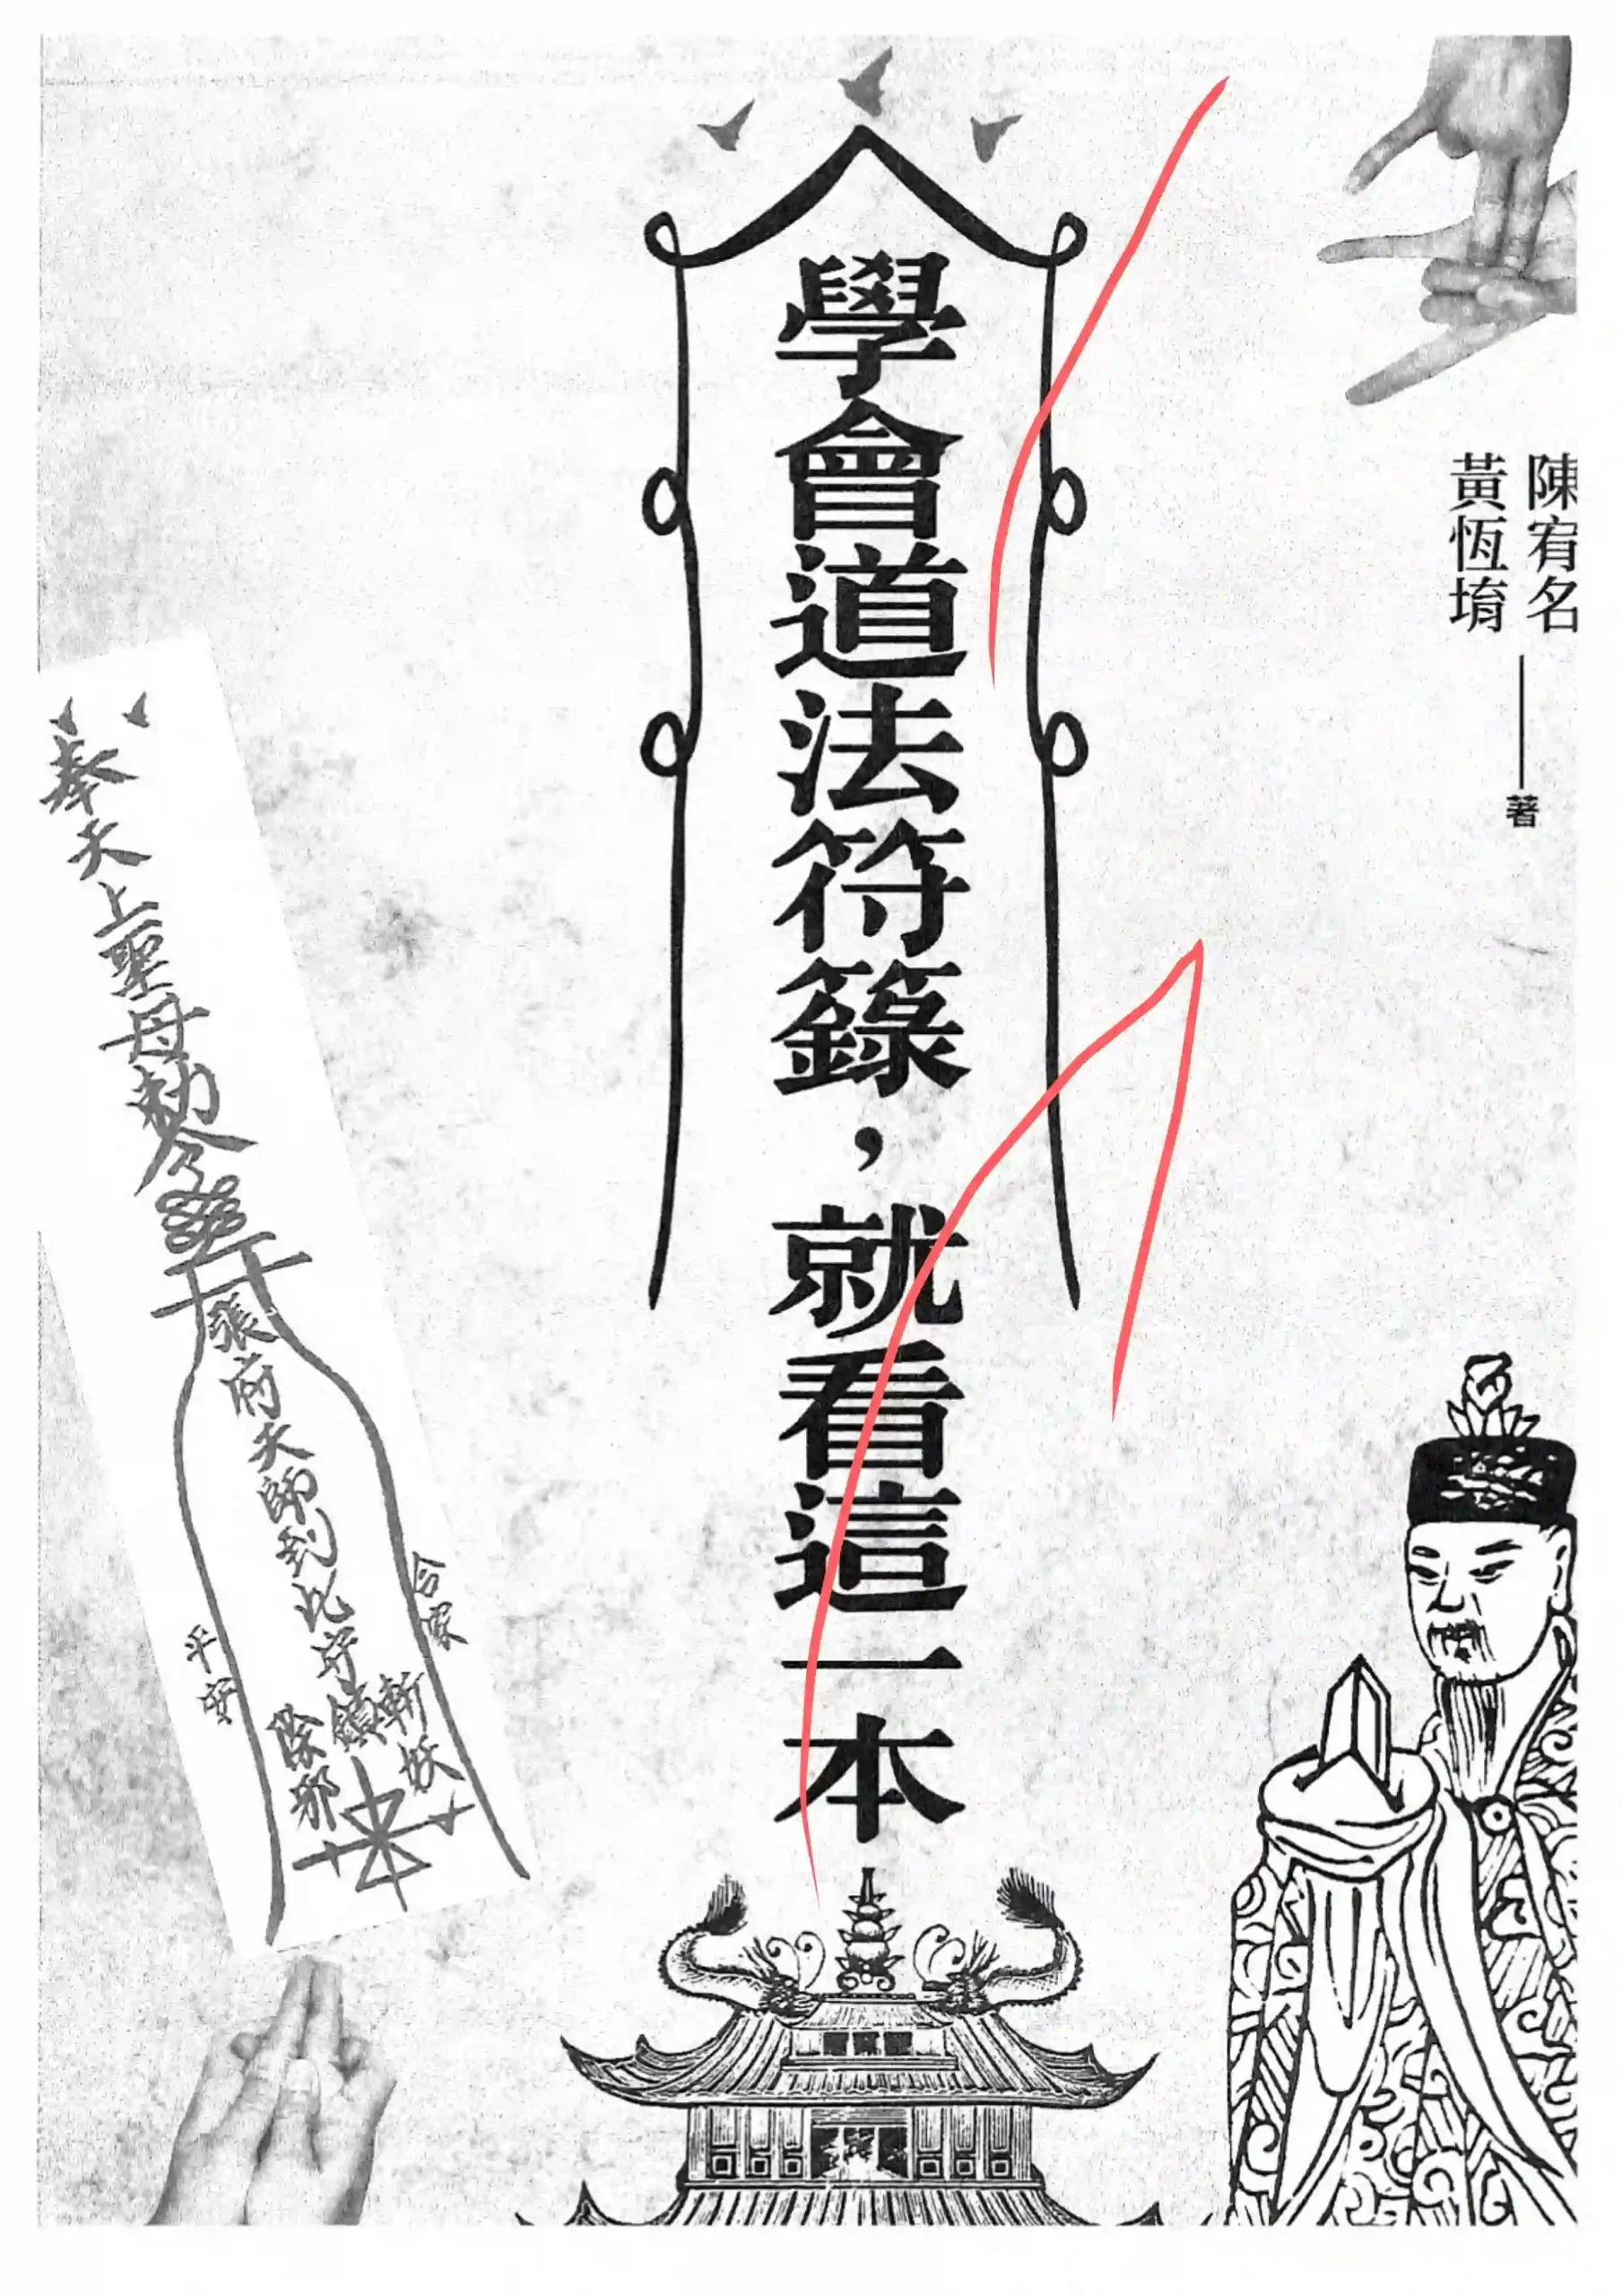 陳宥名
黃恆堉
著
學會道法符籙,就看這一本
奉天上聖母勅令
張府天師到此守鎮
斬妖
除邪
合家
平安